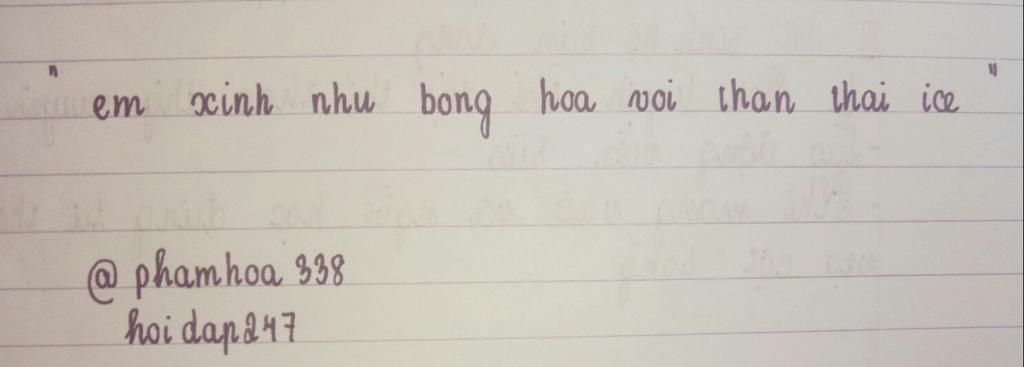 " em xinh nhu bong hoa voi than thai ice "
@ phamhoa 338
hoidap247